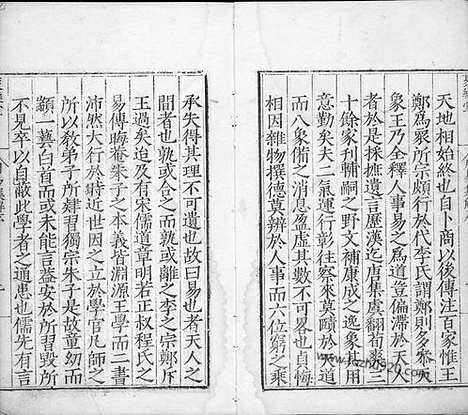 天地相始終也自卜商以後傳注百家惟王
鄭為衆所宗頗行於代李氏謂鄭則多參天
象王乃全釋人事易之為道豈偏滯於天人
者於是採摭遺言歷漢迄唐集虞翻荀爽三
十餘家刊輔嗣之野文補康成之逸象其用
意勤矣夫二氣運行彰往察來莫賾於道
而八象備之消息盈虛其數不可畧也自天
相因雜物撰德莫辨於人事而六位窮之乘
承失得其理不可遺也故曰易也者天人之
間者也孰或合之而孰或離之李之宗鄭斥
王過矣迨及有宋儒道章明若正叔程氏之
易傳晦菴朱子之本義皆淵源王學而二書
沛然大行於時近世因之立於學官凡師之
所以教弟子所肄習獨宗朱子是故童幼而
顓一藝白首而或未能言蓋安於所習毀所
不見卒以自蔽此學者之通患也儒先有言